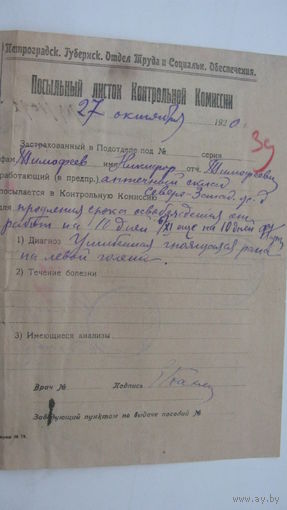 Петроградск. Губернск. Отдел Труда и Социальн. Обеспечения.
Посыльный листок Контрольной Комиссии
27 октября 1920.
39
Застрахованный в Подотделе под № серия
фам. Тимофеев имя Никифор отч. Тимофеевич
работающий (в предпр.) склад
посылается в Контрольную Комиссию Северо-Запад. ж. д
для продления срока освобождения от
работ на 10 дней еще на 10 дней
1) Диагноз Ушибленная гноящаяся рана
на левой голени.
2) Течение болезни
3) Имеющиеся анализы
Врач № Подпись
Заведующий пунктом по выдаче пособий №
ay.by